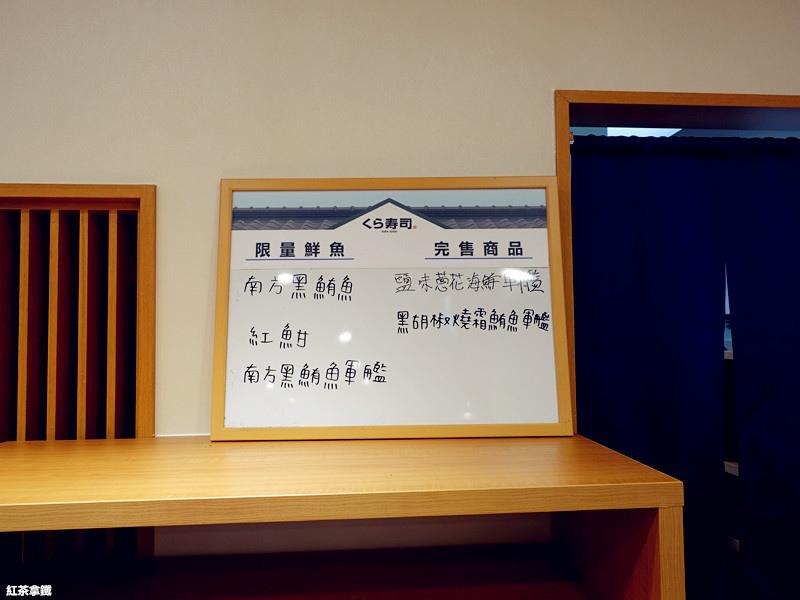 くら寿司
限量鮮魚
完售商品
南方黑鮪魚
紅魽
南方黑鮪魚軍艦
鹽味蔥花海鮮軍艦
黑胡椒燒霜鮪魚軍艦
紅茶拿鐵